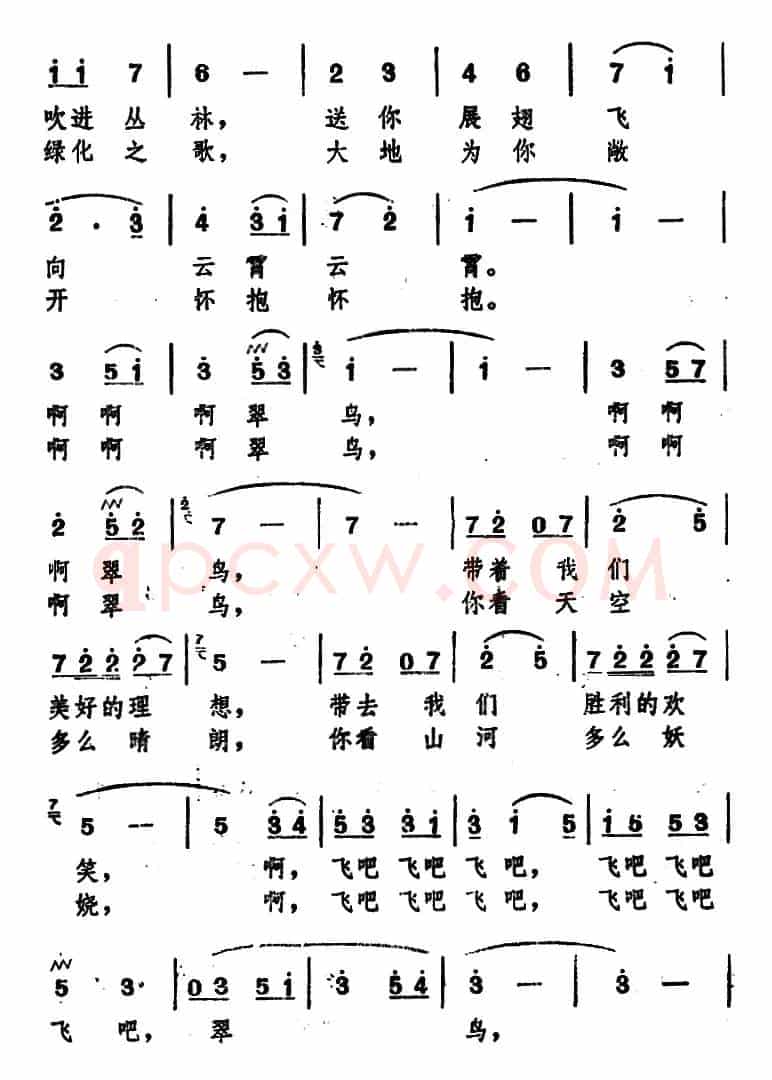 i i 7 | 6 — | 2 3 | 4 6 | 7 i |
吹进 丛 林， 送 你 展 翅 飞
绿化 之 歌， 大 地 为 你 敞
2 · 3 | 4 3 1 | 7 2 | i — | i — |
向 云 霄 云 霄。
开 怀 抱 怀 抱。
3 5 i | 3 5 3 | i — | i — | 3 5 7 |
啊 啊 啊 翠 鸟， 啊 啊
啊 啊 啊 翠 鸟， 啊 啊
2 5 2 | 7 — | 7 — | 7 2 0 7 | 2 5 |
啊 翠 鸟， 带着 我 们
啊 翠 鸟， 你看 天 空
qpcxw.com
7 2 2 2 7 | 5 — | 7 2 0 7 | 2 5 | 7 2 2 2 7 |
美好的理 想， 带去 我 们 胜利的欢
多么 晴 朗， 你看 山 河 多么 妖
5 — | 5 3 4 | 5 3 3 i | 3 i 5 | i 6 5 3 |
笑， 啊， 飞吧 飞吧 飞吧， 飞吧 飞吧
娆， 啊， 飞吧 飞吧 飞 吧， 飞吧 飞吧
5 3 | 0 3 5 i | 3 5 4 | 3 — | 3 — |
飞 吧， 翠 鸟，